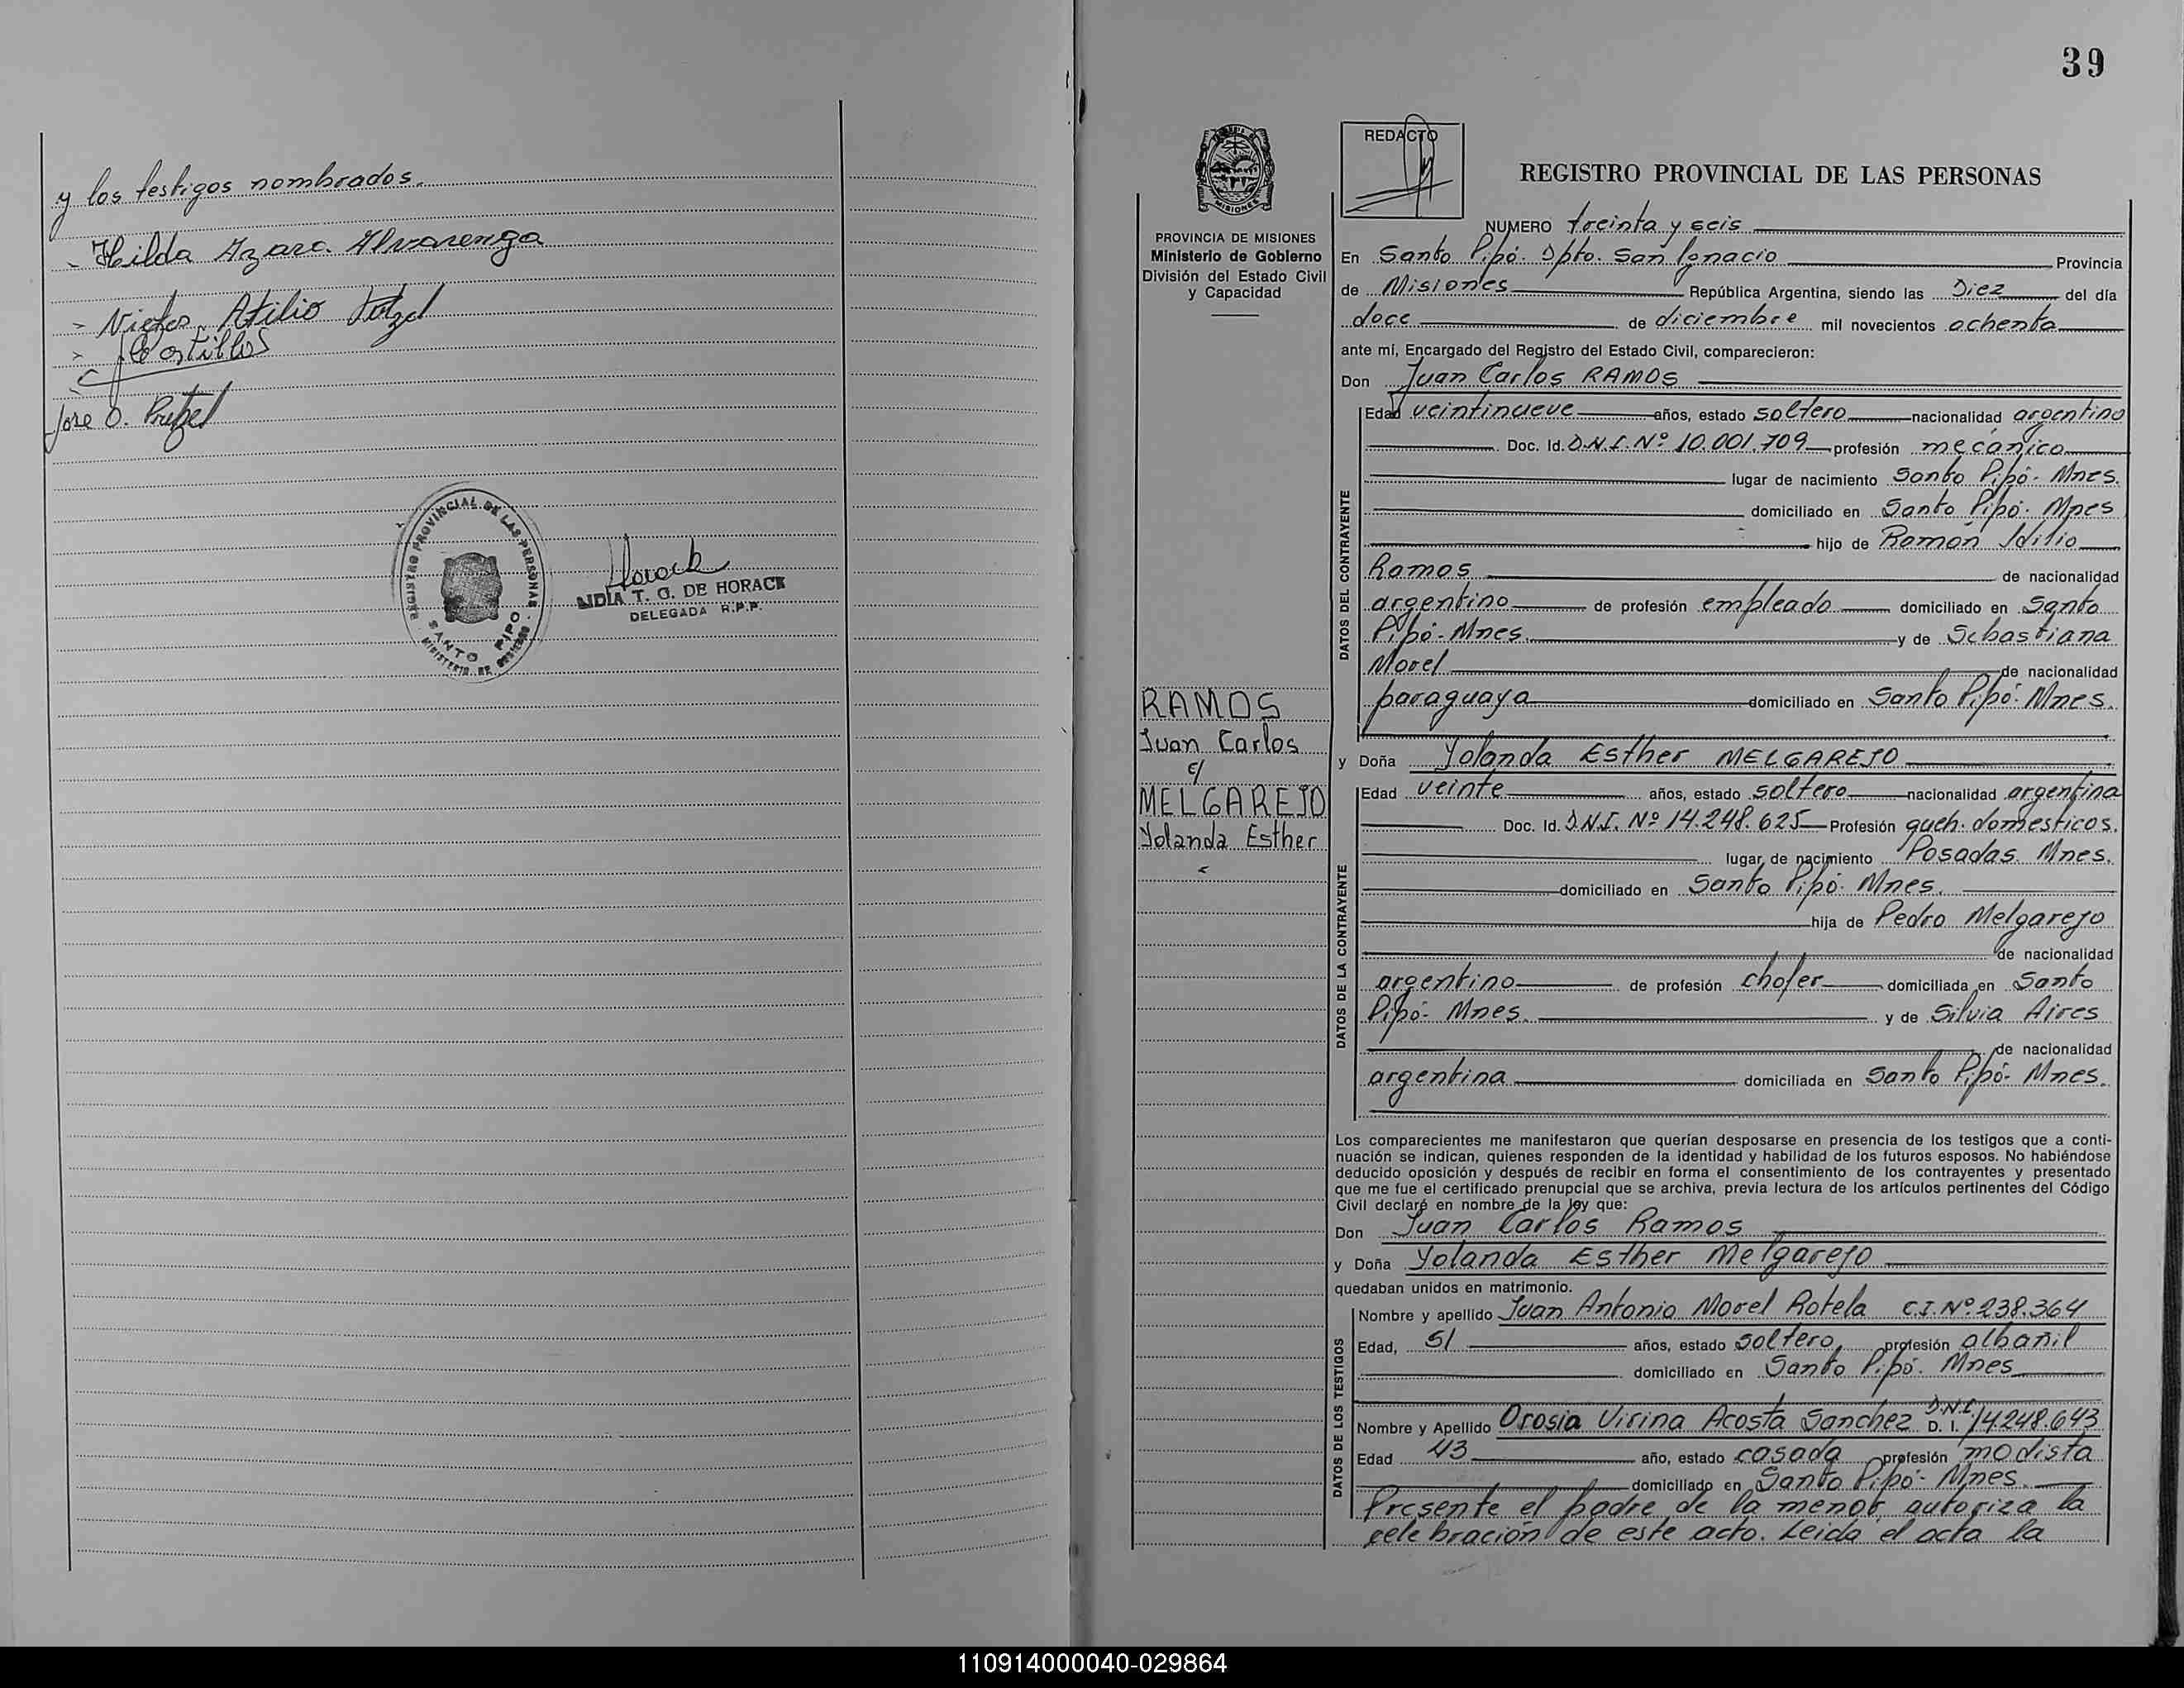 y los testigos nombrados.
Hilda Azara Alvarenga
Atilio
Jose O. Pretzel
REGISTRO PROVINCIAL DE LAS PERSONAS
SANTO PIPO
MINISTERIO DE GOBIERNO
Horack
T. G. DE HORACK
DELEGADA R.P.P.
39
PROVINCIA DE MISIONES
Ministerio de Gobierno
División del Estado Civil
y Capacidad
RAMOS
Juan Carlos
c/
MELGAREJO
Yolanda Esther
REDACTO
REGISTRO PROVINCIAL DE LAS PERSONAS
NUMERO treinta y seis
En Santo Pipó. Dpto. San Ignacio Provincia
de Misiones República Argentina, siendo las Diez del día
doce de diciembre mil novecientos ochenta
ante mí, Encargado del Registro del Estado Civil, comparecieron:
Don Juan Carlos RAMOS
DATOS DEL CONTRAYENTE
Edad veintinueve años, estado soltero nacionalidad argentino
Doc. Id. D.N.I. Nº 10.001.709 profesión mecánico
lugar de nacimiento Santo Pipó- Mnes.
domiciliado en Santo Pipó. Mnes
hijo de Ramón Idilio
Ramos de nacionalidad
argentino de profesión empleado domiciliado en Santo
Pipó-Mnes. y de Sebastiana
Morel de nacionalidad
paraguaya domiciliado en Santo Pipó. Mnes.
y Doña Yolanda Esther MELGAREJO
DATOS DE LA CONTRAYENTE
Edad veinte años, estado soltero nacionalidad argentina
Doc. Id. D.N.I. Nº 14.248.625 Profesión queh. domesticos.
lugar de nacimiento Posadas. Mnes.
domiciliado en Santo Pipó. Mnes.
hija de Pedro Melgarejo
de nacionalidad
argentino de profesión chofer domiciliada en Santo
Pipó- Mnes. y de Silvia Aires
de nacionalidad
argentina domiciliada en Santo Pipó- Mnes.
Los comparecientes me manifestaron que querían desposarse en presencia de los testigos que a conti-
nuación se indican, quienes responden de la identidad y habilidad de los futuros esposos. No habiéndose
deducido oposición y después de recibir en forma el consentimiento de los contrayentes y presentado
que me fue el certificado prenupcial que se archiva, previa lectura de los artículos pertinentes del Código
Civil declaré en nombre de la ley que:
Don Juan Carlos Ramos
y Doña Yolanda Esther Melgarejo
quedaban unidos en matrimonio.
DATOS DE LOS TESTIGOS
Nombre y apellido Juan Antonio Morel Rotela C.I. Nº 238.364
Edad, 51 años, estado soltero profesión albañil
domiciliado en Santo Pipó. Mnes
Nombre y Apellido Orosia Virina Acosta Sanchez D. I. D.N.I. 14.248.643
Edad 43 año, estado casada profesión modista
domiciliado en Santo Pipó- Mnes.
Presente el padre de la menor autoriza la
celebración de este acto. Leida el acta la
110914000040-029864